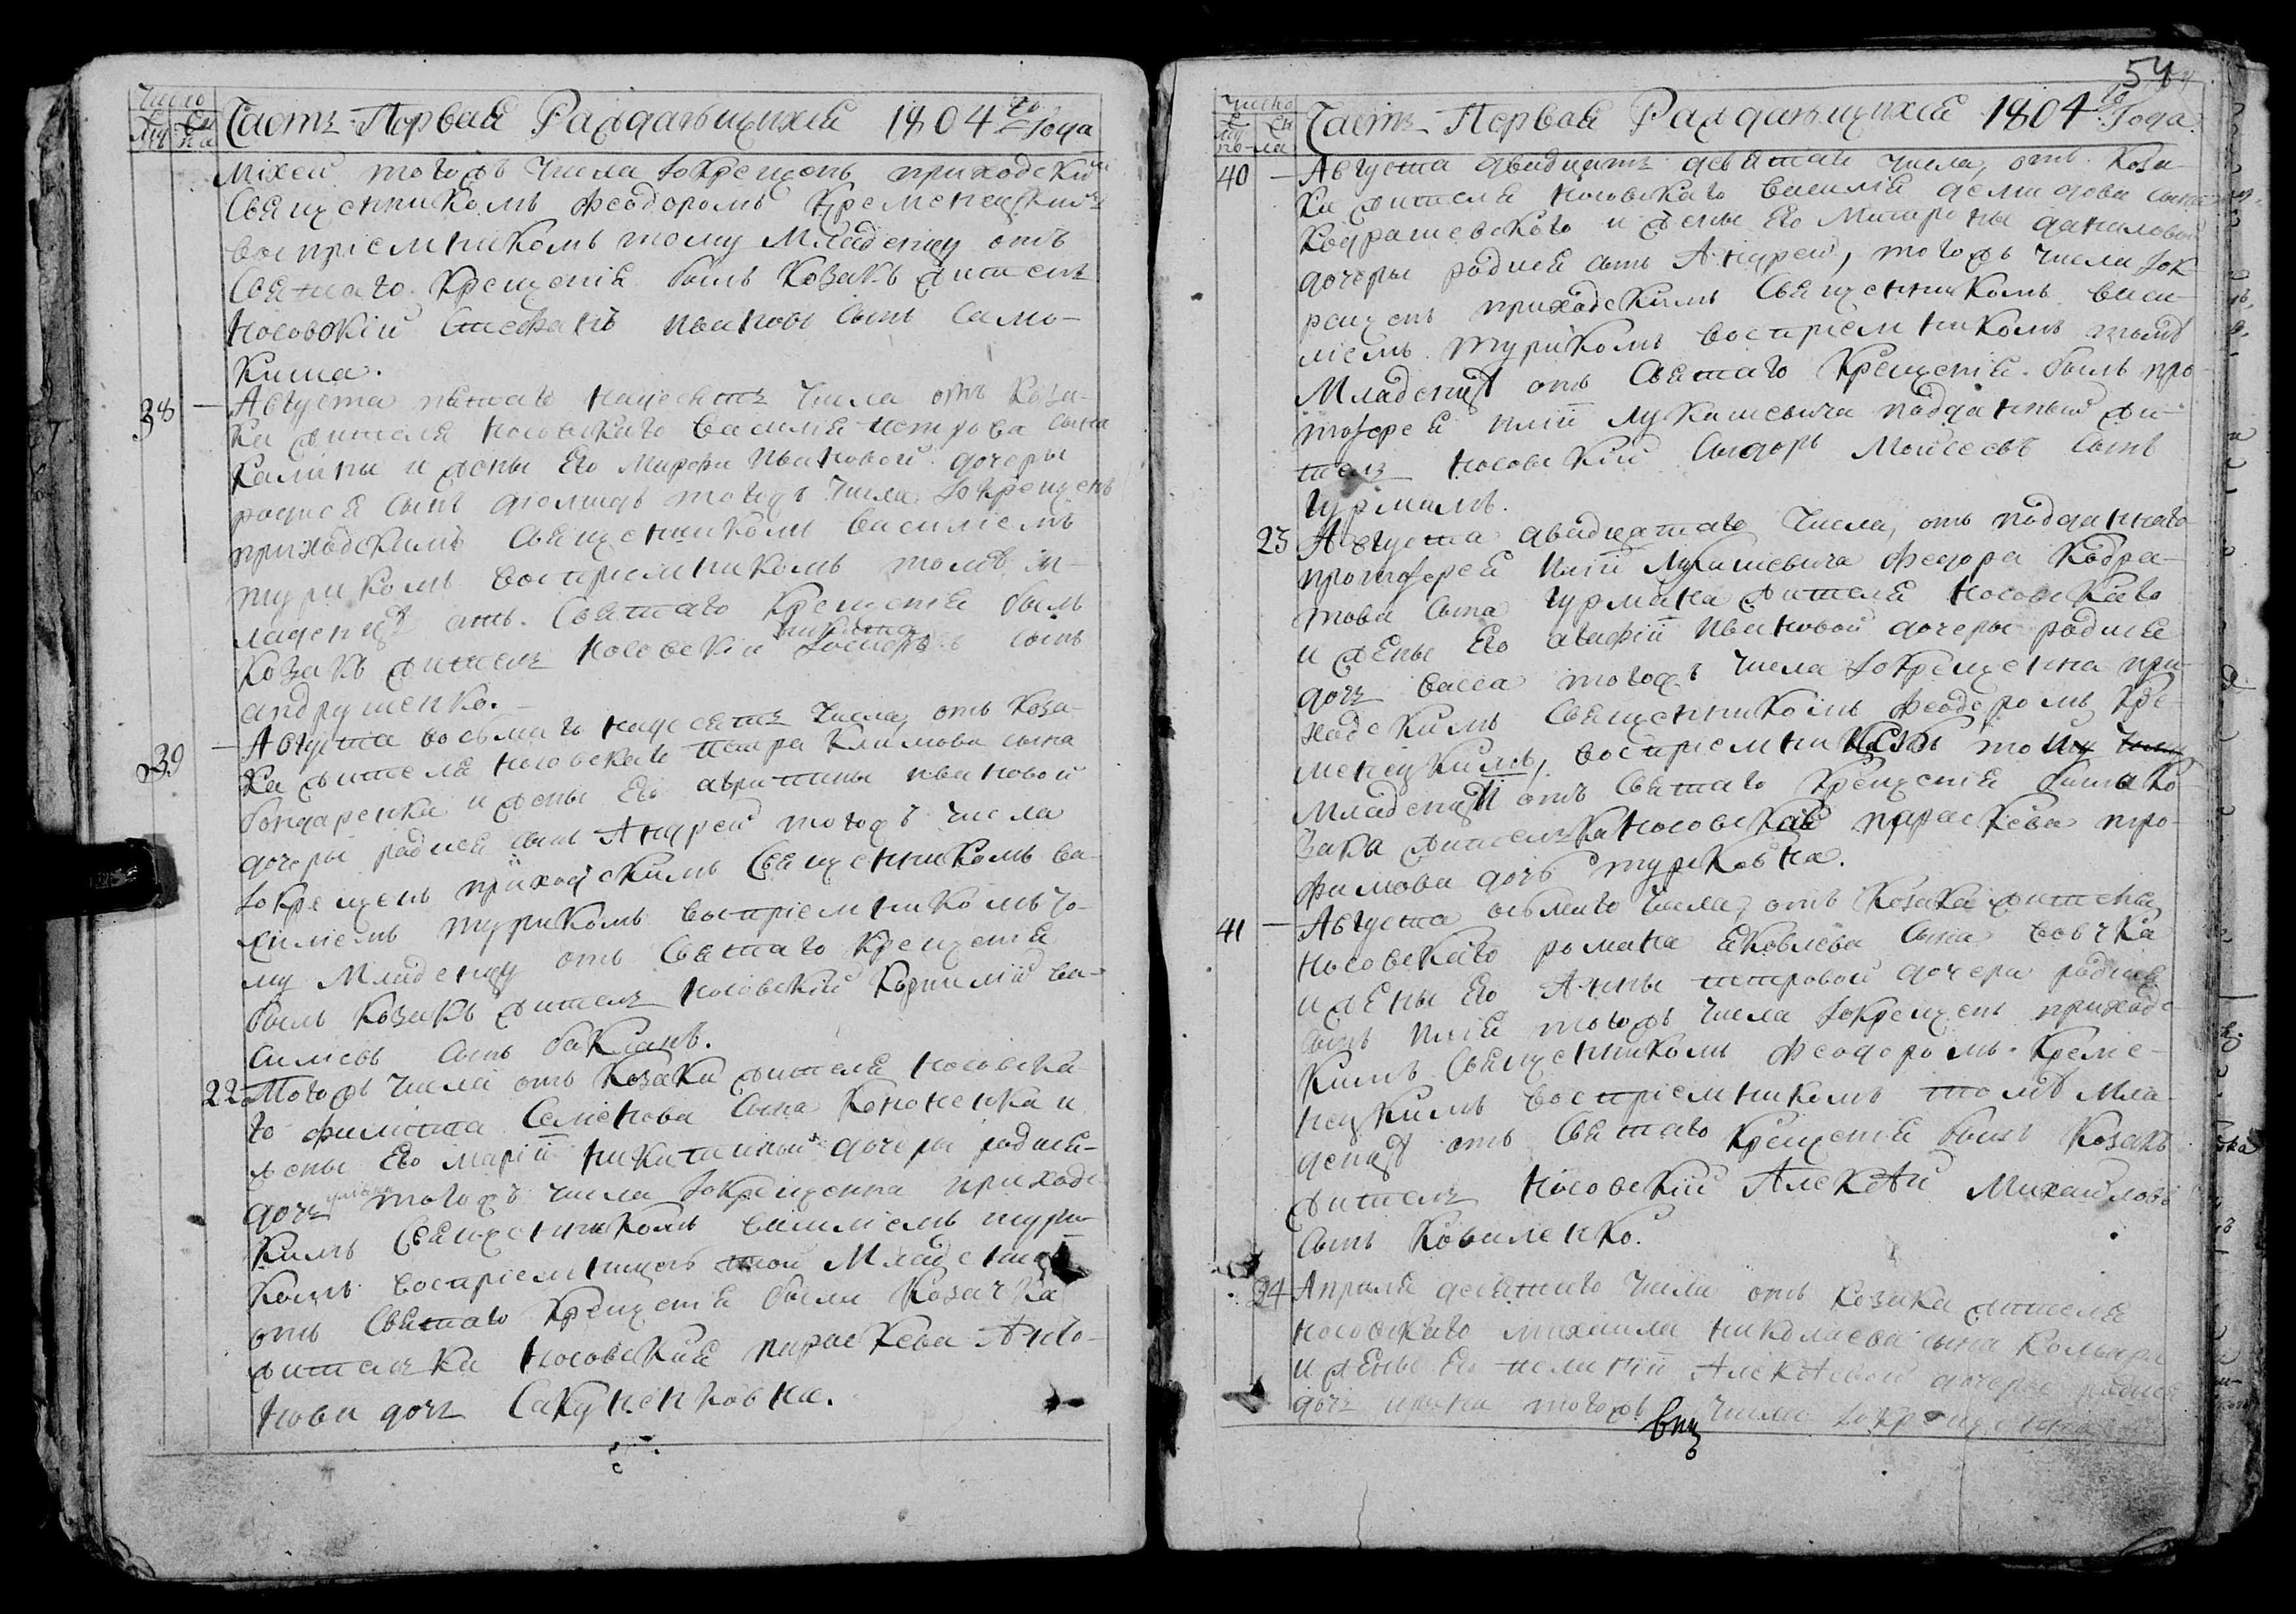 Число
Часть Первая Раждающихся 1804 го Года
Міхей тогожъ числа окрещенъ приходским
Священникомъ Феодоромъ Кременецкимъ
воспріемникомъ тому Младенцу отъ
Святаго Крещенія былъ Козакъ житель
Носовскій Стефанъ Ивановъ сынъ Само-
Киша.
38 Августа пятого надесять числа отъ Коза-
ка жителя Носовского Василія Петрова сына
Калины и жены его Марфи Ивановой дочеры
родися сынъ Диомидъ тогожъ числа окрещенъ
приходскимъ Священникомъ Василіемъ
Туриkомъ воспріемникомъ тому м-
ладенцу отъ Святаго Крещенія былъ
Козакъ житель Носовскій Никита сынъ
Андрушенко.
39 Августа восьмаго надесять числа, отъ Коза-
ка жителя Носовскаго Петра Климова сына
Бондаренка и жены его Ивановой
дочеры родися сынъ Андрей тогожъ числа
окрещенъ приходскимъ Священникомъ Ва-
силіемъ Туриkомъ воспріемникомъ то-
му Младенцу отъ Святаго Крещенія
былъ Козакъ житель Носовскій Корнилій Ва-
силіевъ сынъ Бакланъ.
22 Тогожъ числа отъ Козака жителя Носовска-
го Филиппа Семенова сына Кононенка и
жены его Маріи Никитиной дочеры родися
дочь Уліяна тогожъ числа окрещенна приходс
кимъ Священникомъ Василіемъ Тури-
комъ воспріемницею той Младениц
отъ Святаго Крещенія была Козачка
жителька Носовская Параскева Анто-
нова дочь Сакуненковна.
54
Число
Часть Первая Раждающихся 1804 го Года
40 Августа двадцать девятаго числа, отъ Коза-
ка жителя Носовскаго Василія Демидова сына
Кондрашевского и жены его Мотроны Даниловой
дочеры родися сынъ Андрей, тогожъ числа ок-
рещенъ приходскимъ Священникомъ Васи-
ліемъ Туриkомъ воспріемникомъ тому
Младенцу отъ Святаго Крещенія былъ про-
тоіерея Иліи Лукашевича подданный жи-
тель Носовскій Сидоръ Моисеевъ сынъ
Гурманъ.
23 Августа двадцатаго числа, отъ подданнаго
протоіерея Иліи Лукашевича Федора Кодра-
това сына Гурмана жителя Носовскаго
и жены его Агафіи Ивановой дочеры родися
дочь Васса тогожъ числа окрещенна при-
ходскимъ Священникомъ Феодоромъ Кре-
менецкимъ, воспріемницею той
Младеницы отъ Святаго Крещенія была Ко-
зака жителька Носовская Параскева Тро-
фимова дочь Турковна.
41 Августа осьмаго числа, отъ Козака жителя
Носовскаго Романа Яковлева сына Вовчка
и жены его Анны Петровой дочери родися
сынъ Илія тогожъ числа окрещенъ приходс
кимъ Священникомъ Феодоромъ Креме-
нецкимъ воспріемникомъ тому Мла-
денцу отъ Святаго Крещенія былъ Козакъ
житель Носовскій Алексѣй Михайловъ
сынъ Коваленко.
24 Апреля десятаго числа отъ Козака жителя
Носовскаго Михаила Николаева сына Комара
и жены его Пелагіи Алексѣевой дочеры родися
дочь тогожъ числа окрещенна